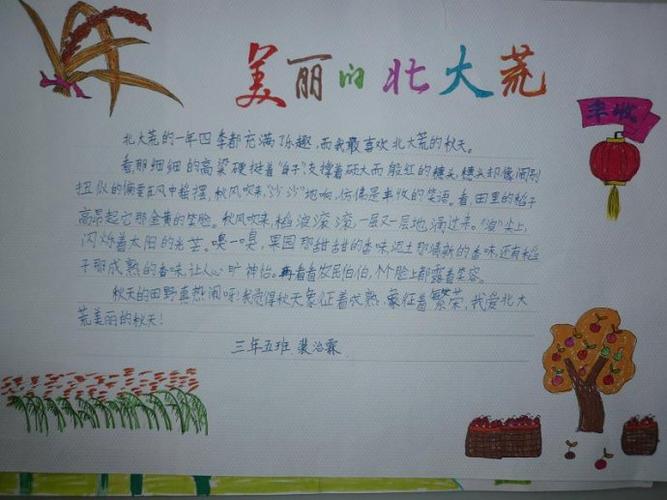 美丽的北大荒
丰收
北大荒的一年四季都充满了乐趣,而我最喜欢北大荒的秋天。
看那细细的高梁硬挺着"身子",支撑着硕大而殷红的穗头,穗头却像闹别
扭似的偏要在风中摇摆,秋风吹来,"沙沙"地响,仿佛是丰收的笑语。看,田里的稻子
高昂起它那金黄的笑脸。秋风吹来,稻浪滚滚,一层又一层地涌过来。"浪"尖上,
闪烁着太阳的光芒。嗅一嗅,果园那甜甜的香味,泥土那清新的香味,还有稻
子那成熟的香味,让人心旷神怡。再看看农民伯伯,个个脸上都露着笑容。
秋天的田野真热闹呀!我觉得秋天象征着成熟,象征着繁荣,我爱北大
荒美丽的秋天!
三年五班 裴治霖